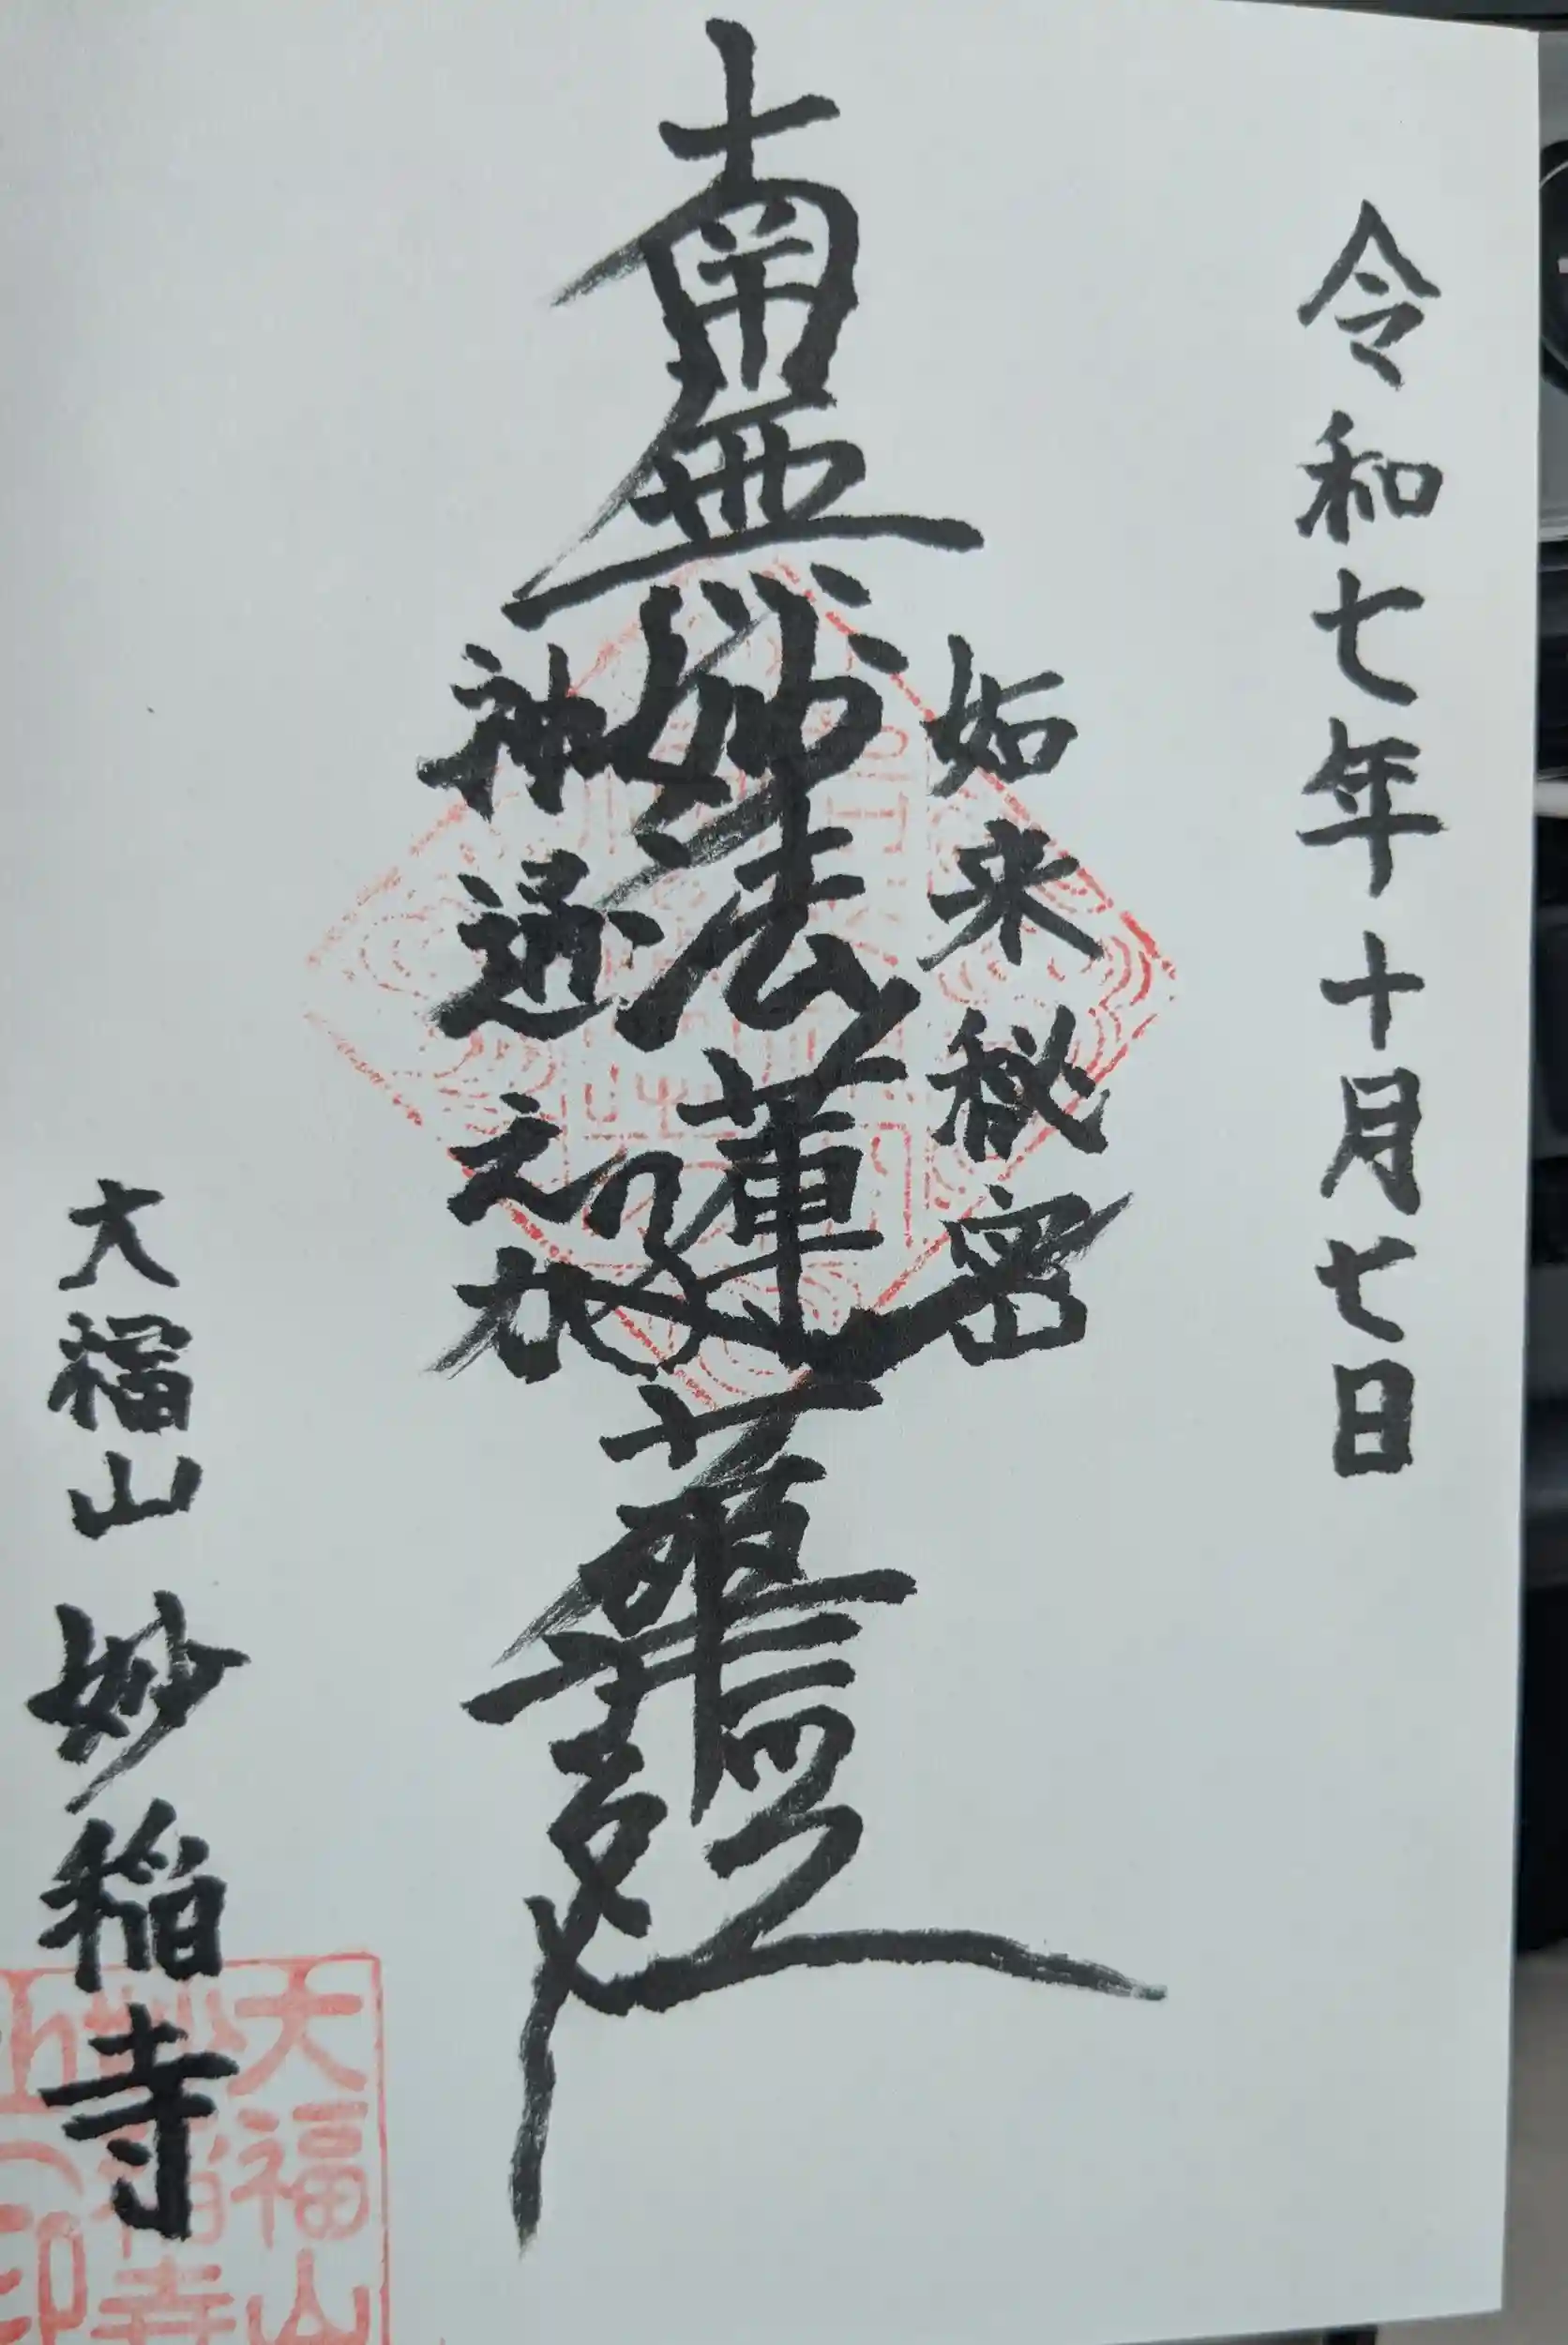 令和七年十月七日
如来秘密
南無妙法蓮華経
神通之力
大福山 妙稲寺
大福山
妙稲寺
印